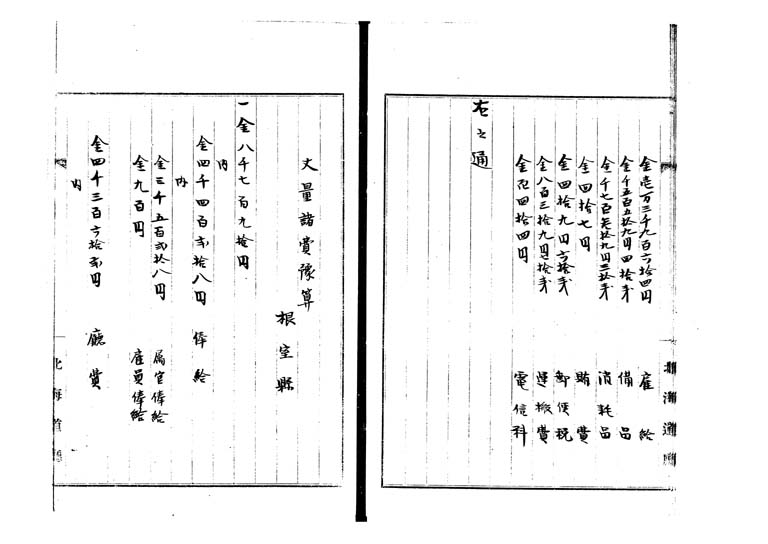 金壱万三千九百六拾四円 雇給
金千五百五拾九円四拾銭 備品
金千七百 拾九円三拾銭 消耗品
金四拾七円 賄費
金四拾九円六拾銭 郵便税
金八百三拾九円 拾銭 運搬費
金 四拾四円 電信料
右之通
丈量諸費豫算
根室縣
一金八千七百九拾円
内
金四千四百弐拾八円 俸給
内
金三千五百弐拾八円 属官俸給
金九百円 雇員俸給
金四千三百六拾弐円 廳費
内
北海道